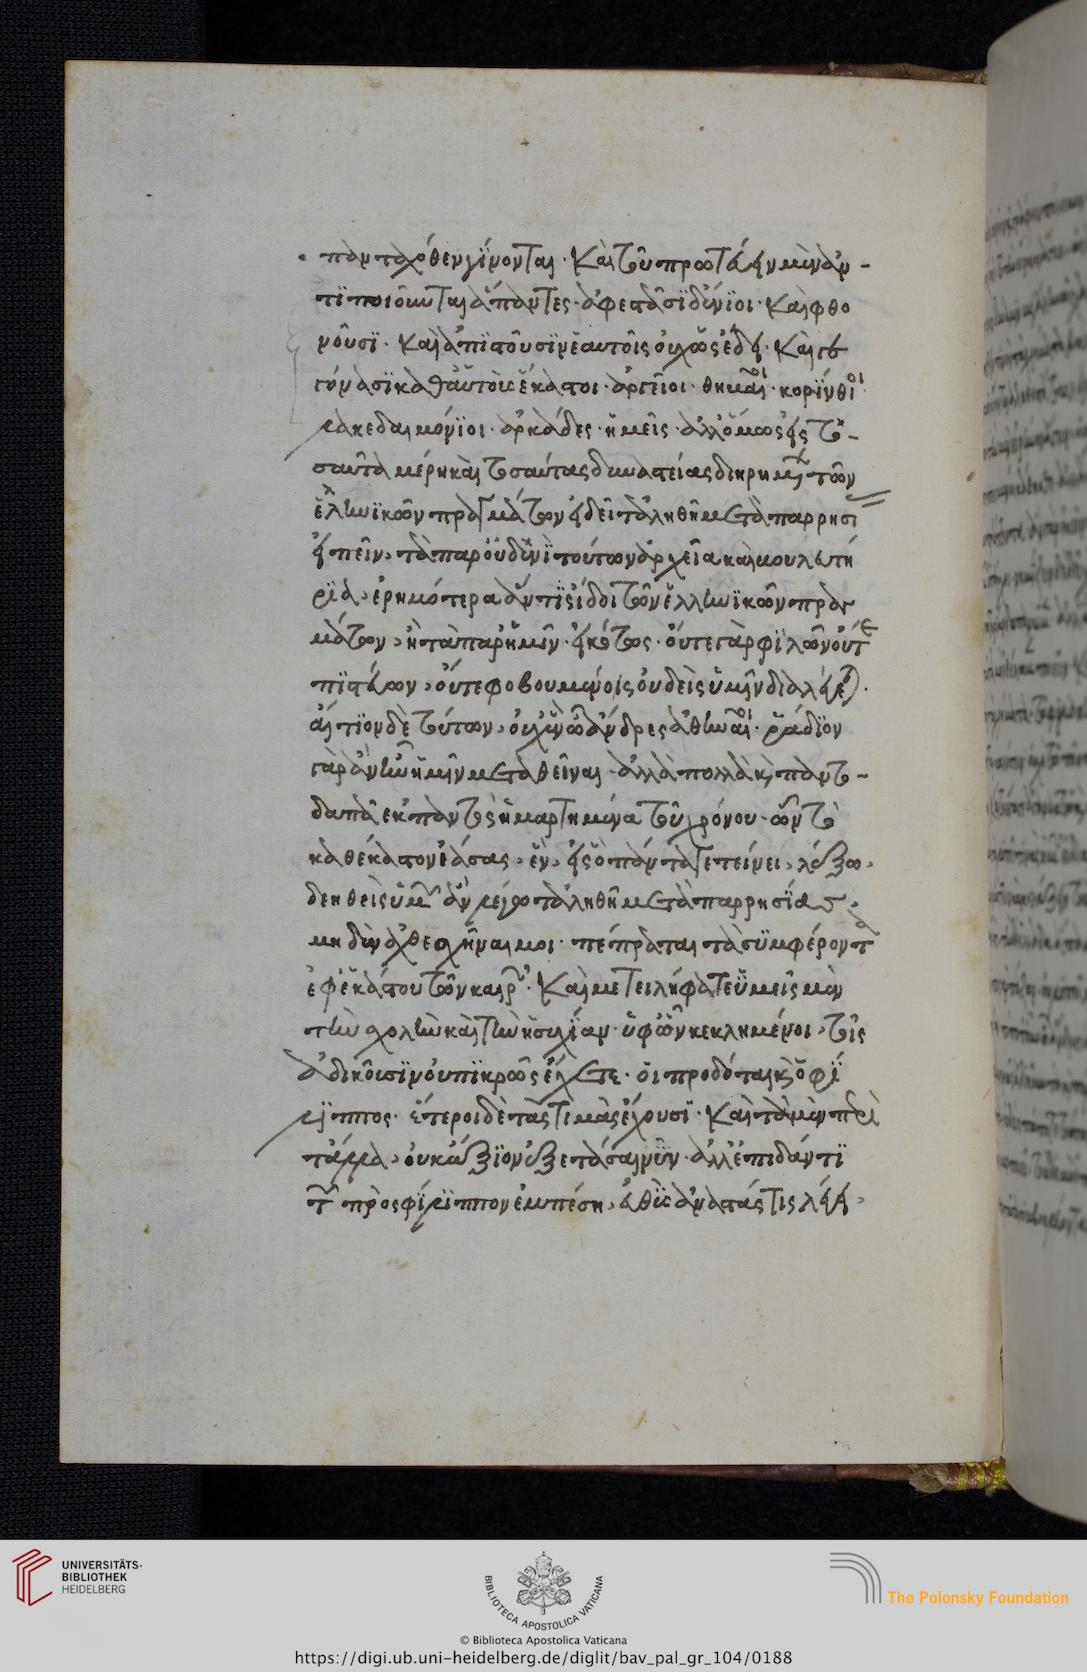 πανταχόθεν γίνονται· καὶ τοῦ πρωτεύειν μὲν ἀν-
τιποιοῦνται ἅπαντες· ἀφεστᾶσι δ' ἔνιοι· καὶ φθο
νοῦσι· καὶ ἀπιστοῦσιν ἑαυτοῖς οὐχ ὡς ἔδει· καὶ γε
γόνασι καθ' αὑτοὺς ἕκαστοι· ἀργεῖοι· θηβαῖοι· κορίνθιοι
λακεδαιμόνιοι· ἀρκάδες· ἡμεῖς· ἀλλ' ὅμως εἰς το-
σαῦτα μέρη καὶ τοσαύτας δυναστείας διῃρημένων τῶν
ἑλληνικῶν πραγμάτων εἰ δεῖ τἀληθῆ μετὰ παρρησί
εἰπεῖν, τὰ παρ' οὐδένι τούτων ἀρχεῖα καὶ βουλευτή
ρια, ἐρημότερα ἄν τις ἴδοι τῶν ἑλληνικῶν πραγ
μάτων, ἢ τὰ παρ' ἡμῖν· εἰκότως· οὔτε γὰρ φιλῶν οὔτε
πιστεύων, οὔτε φοβουμένοις οὐδεὶς ὑμῖν διαλέγε
αἴτιον δὲ τούτων, οὐχ ἓν ὦ ἄνδρες ἀθηναῖοι· ῥᾴδιον
γὰρ ἂν ἦν ἡμῖν μεταθεῖναι· ἀλλὰ πολλὰ καὶ παντο-
δαπὰ ἐκ παντὸς ἡμαρτημένα τοῦ χρόνου· ὧν τὸ
καθ' ἕκαστον ἐάσας, ἓν, εἰς ὃ πάντα τείνει, λέξω,
δεηθεὶς ὑμῶν ἂν λέγω τἀληθῆ μετὰ παρρησίας,
μηδὲν ἀχθεσθῆναι μοι· πέπραται τὰ συμφέροντα
ἐφ' ἑκάστου τῶν καιρῶν· καὶ μετειλήφατε ὑμεῖς μὲν
τὴν σχολὴν καὶ τὴν ἡσυχίαν· ὑφ' ὧν κεκλημένοι, τοῖς
ἀδικοῦσιν οὐ πικρῶς ἔχετε· οἱ προδόται καὶ ὁ φί
λιππος· ἕτεροι δὲ τὰς τιμὰς ἔχουσι· καὶ τὰ μὲν περὶ
τἄλλα, οὐκ ἄξιον ἐξετάσαι νῦν· ἀλλ' ἐπειδάν τι
τῶν πρὸς φίλιππον ἐμπέσῃ, εὐθὺς ἀναστάς τις λέγει,
UNIVERSITÄTS-
BIBLIOTHEK
HEIDELBERG
BIBLIOTECA APOSTOLICA VATICANA
The Polonsky Foundation
© Biblioteca Apostolica Vaticana
https://digi.ub.uni-heidelberg.de/diglit/bav_pal_gr_104/0188